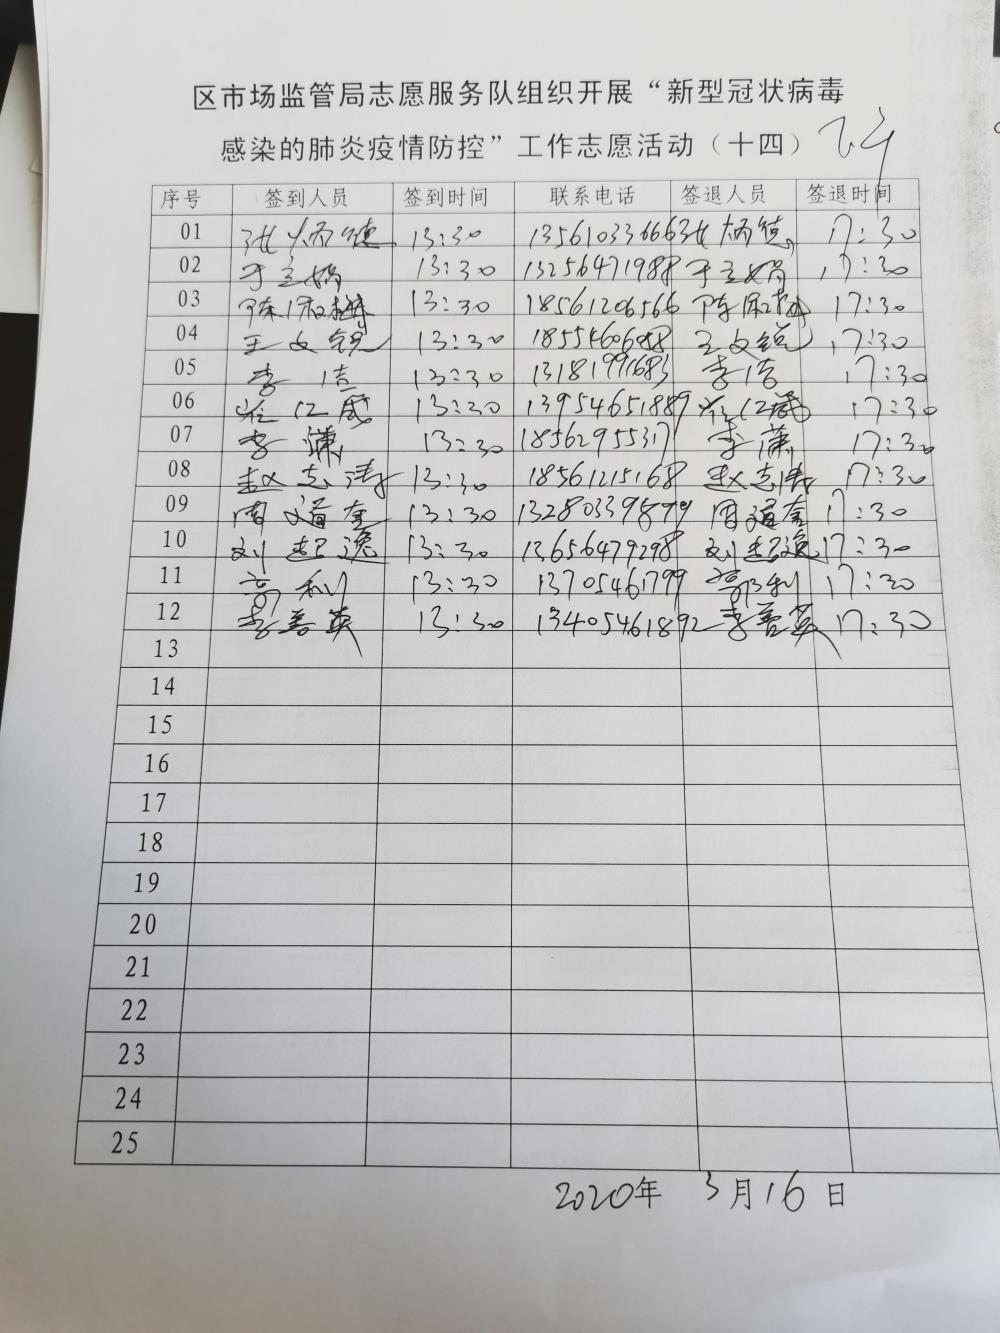 区市场监管局志愿服务队组织开展“新型冠状病毒
感染的肺炎疫情防控”工作志愿活动（十四）
序号 签到人员 签到时间 联系电话 签退人员 签退时间
01 张炳德 13:30 13561033666 张炳德 17:30
02 于立娟 13:30 13256471988 于立娟 17:30
03 陈保梅 13:30 18561206566 陈保梅 17:30
04 王文锐 13:30 王文锐 17:30
05 李洁 13:30 13181991683 李洁 17:30
06 13:30 13954651889 17:30
07 李潇 13:30 18562955317 李潇 17:30
08 赵志涛 13:30 18561215168 赵志涛 17:30
09 周道奎 13:30 周道奎 17:30
10 刘超逸 13:30 13656479298 刘超逸 17:30
11 郭利 13:30 13705461799 郭利 17:30
12 李善英 13:30 13405461892 李善英 17:30
13
14
15
16
17
18
19
20
21
22
23
24
25
2020年 3月16日